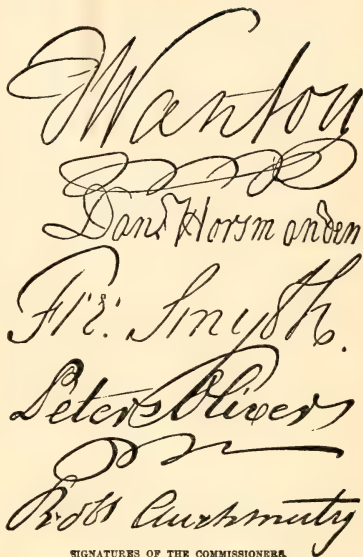 J Wanton
Dan^l Horsmanden
Fre: Smyth.
Peter Oliver
Rob^t Auchmuty
SIGNATURES OF THE COMMISSIONERS.